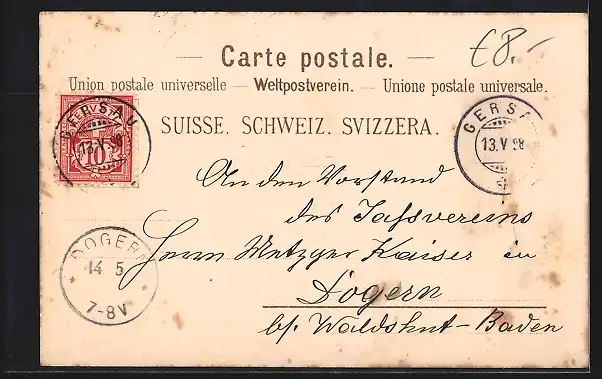 £8.-
— Carte postale. —
Union postale universelle — Weltpostverein. — Unione postale universale.
SUISSE. SCHWEIZ. SVIZZERA.
GERSAU
13.V.98
10
GERSA
13.V 98
An den Vorstand
des Jassvereins
Herrn Metzger Kaiser in
Dogern
bf. Waldshut-Baden
DOGERN
14 5
7-8V